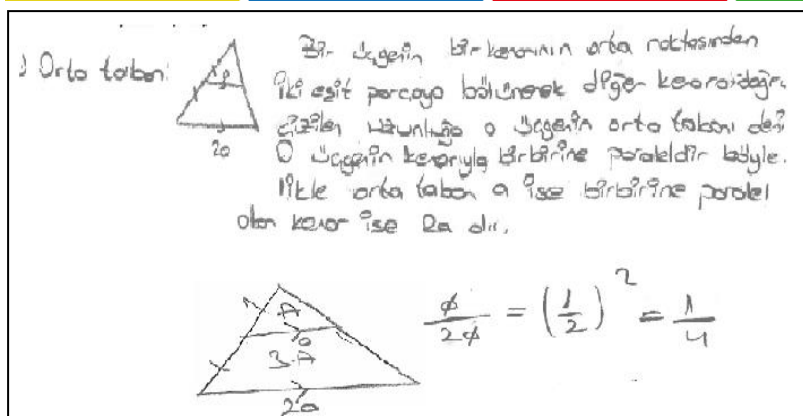 Orta taban:
Bir üçgenin bir kenarının orta noktasından
iki eşit parçaya bölünerek diğer kenara değin
çizilen uzunluğa o üçgenin orta tabanı deni
O üçgenin kenarıyla birbirine paraleldir böyle.
likle orta taban a ise birbirine paralel
olan kenar ise 2a dır.
a
2a
A
a
3A
2a
a/2a = (1/2)² = 1/4